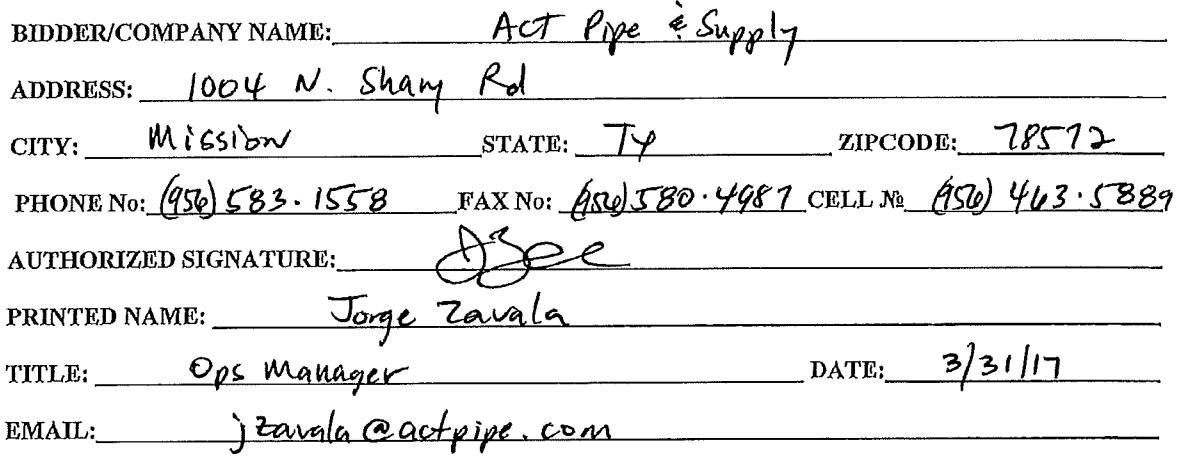 BIDDER/COMPANY NAME: Act Pipe & Supply
ADDRESS: 1004 N. Shary Rd
CITY: Mission STATE: TX ZIPCODE: 78572
PHONE No: (956) 583.1558 FAX No: (956) 580.4987 CELL № (956) 463.5889
AUTHORIZED SIGNATURE:
PRINTED NAME: Jorge Zavala
TITLE: Ops Manager DATE: 3/31/17
EMAIL: jzavala@actpipe.com